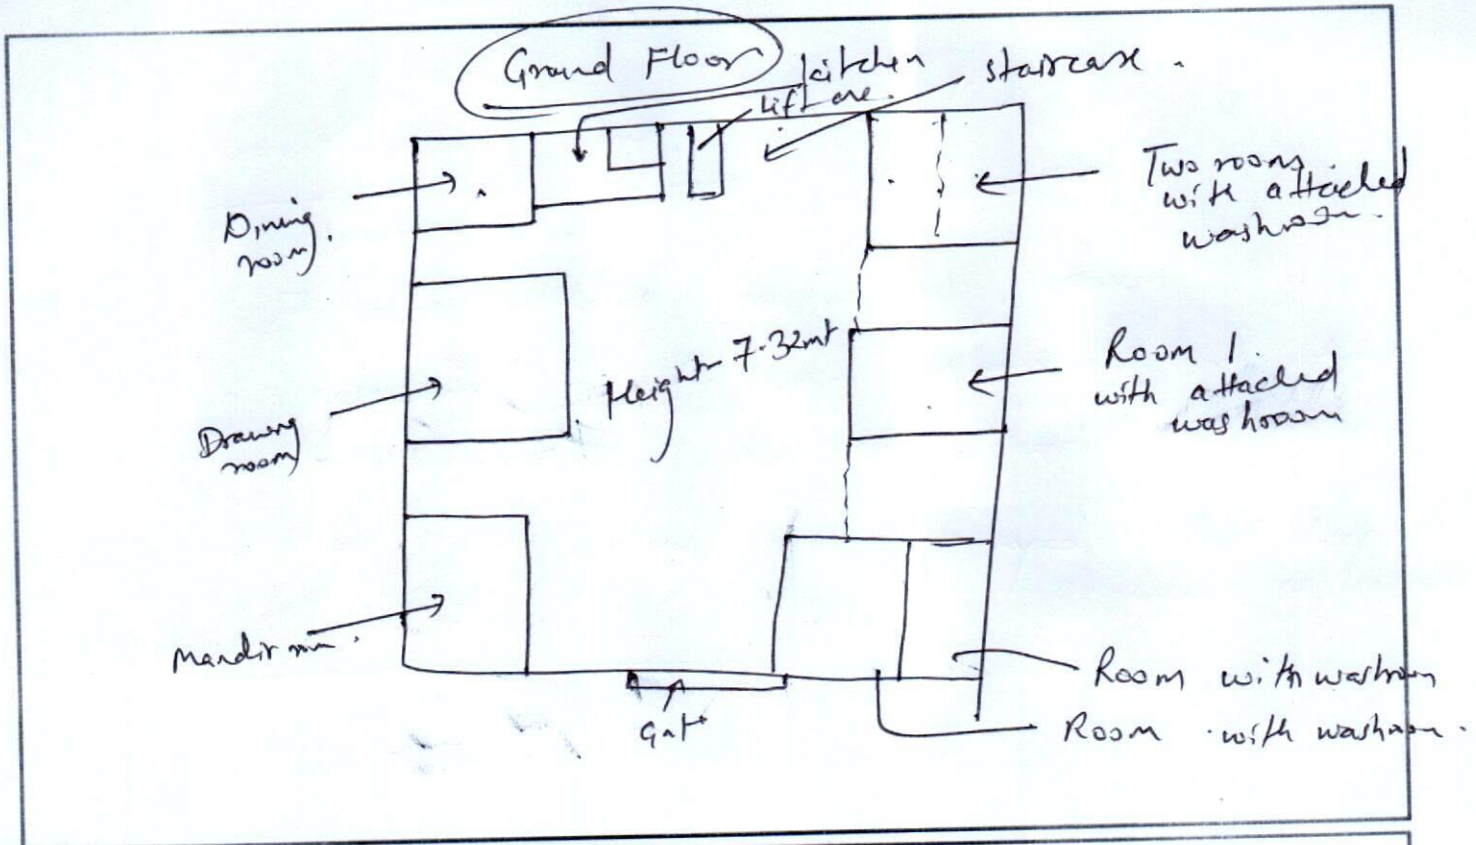 Ground Floor
kitchen
lift are.
staircase.
Dining
room.
Two rooms
with attached
washroom.
Height- 7.32mt
Room 1
with attached
washroom
Drawing
room
Mandir rm.
Gat
Room with washroom
Room with washroom.